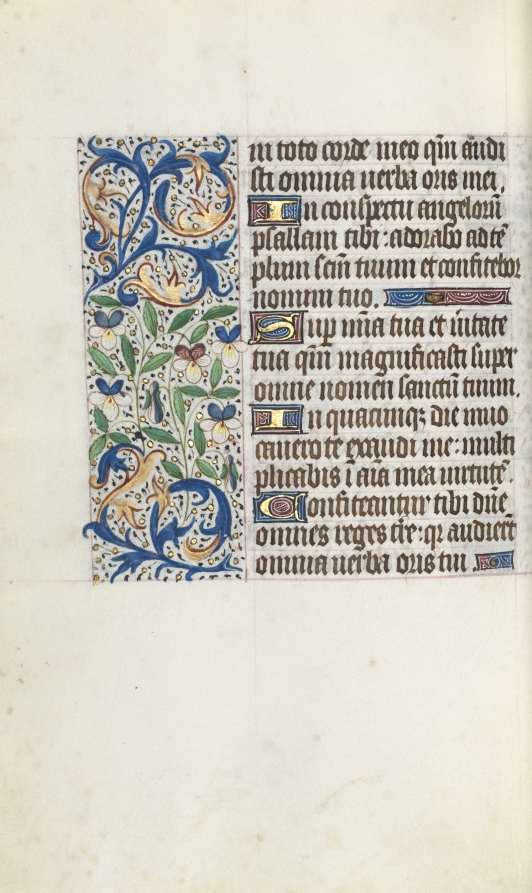 in toto corde meo qm̄ audi
sti omnia uerba oris mei.
In conspectu angelorū
psallam tibi : adorabo ad tē
plum scm̄ tuum et confitebor
nomini tuo.
Sup mīa tua et ūitate
tua qm̄ magnificasti super
omne nomen sanctū tuum.
In quacumqꝫ die inuo
cauero te exaudi me : multi
plicabis ī aīa mea uirtutē.
Confiteantur tibi dn̄e
omnes reges tr̄e : qr audiert
omnia uerba oris tui.